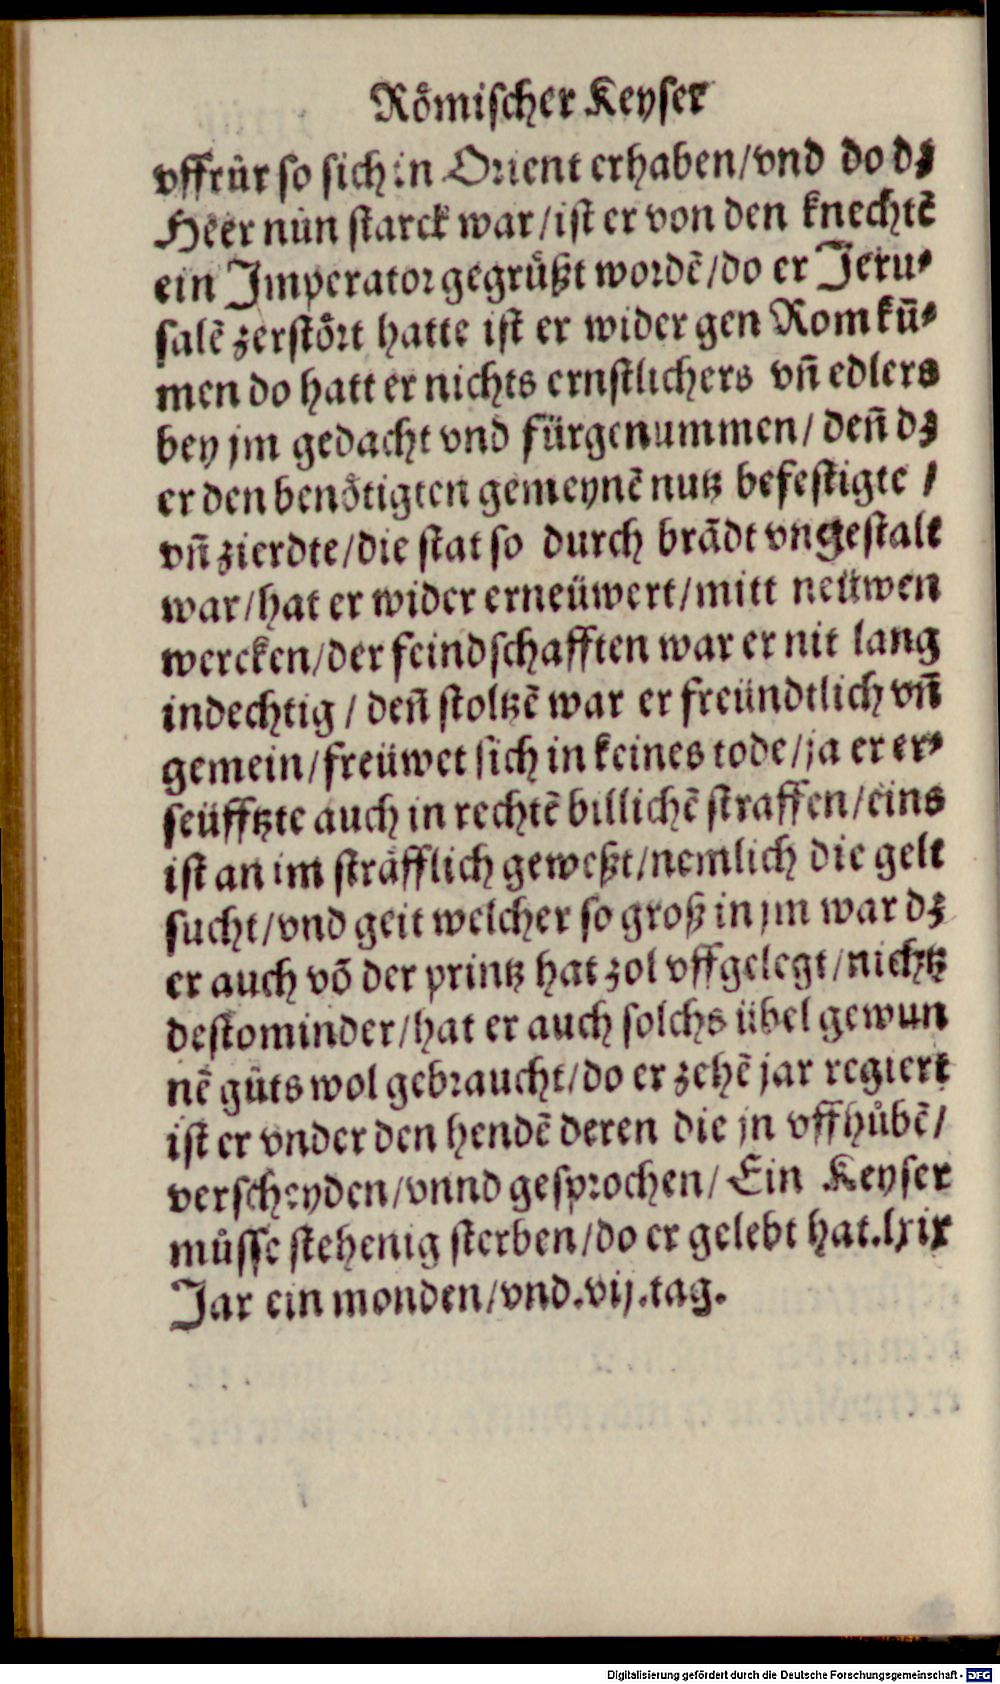 Roͤmischer Keyser
vffruͤr so sich in Orient erhaben/vnd do dz
Heer nun starck war/ist er von den knechtē
ein Imperator gegruͤßt wordē/do er Jeru⸗
salē zerstoͤrt hatte ist er wider gen Rom kūͤ⸗
men do hatt er nichts ernstlichers vñ edlers
bey jm gedacht vnd fürgenummen/ deñ dz
er den benoͤtigten gemeynē nutz befestigte /
vñ zierdte/die stat so durch brādt vngestalt
war/hat er wider erneüwert/mitt neüwen
wercken/der feindschafften war er nit lang
indechtig / deñ stoltzē war er freündtlich vñ
gemein/freüwet sich in keines tode/ja er er⸗
seüfftzte auch in rechtē billichē straffen/eins
ist an im straͤfflich geweßt/nemlich die gelt
sucht/vnd geit welcher so groß in jm war dz
er auch vō der printz hat zol vffgelegt/nichtz
destominder/hat er auch solchs übel gewun
nē guͤts wol gebraucht/do er zehē jar regiert
ist er vnder den hendē deren die jn vffhuͦbē/
verscheyden/vnnd gesprochen/ Ein Keyser
muͤsse stehenig sterben/do er gelebt hat.lxix
Jar ein monden/vnd.vij.tag.
Digitalisierung gefördert durch die Deutsche Forschungsgemeinschaft - DFG